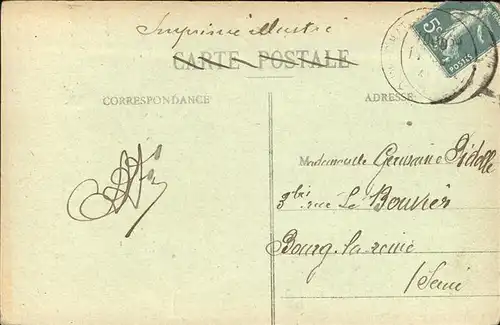 Imprimé illustré
CARTE POSTALE
CORRESPONDANCE
ADRESSE
5c
POSTES
Mademoiselle Germaine Pidolle
3 bis rue Le Bouvier
Bourg-la-reine
/Seine